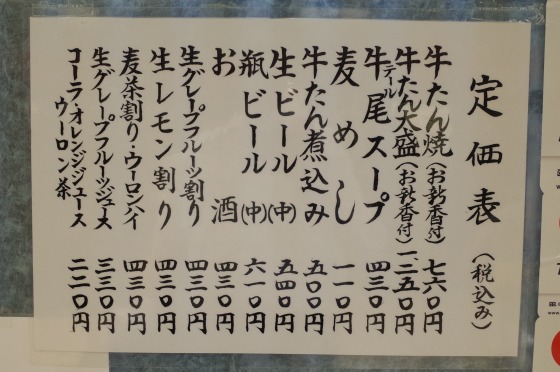 定価表(税込み)
牛たん焼(お新香付)七六〇円
牛たん大盛(お新香付)一、二五〇円
牛尾スープ 四三〇円
テール
麦めし 一一〇円
牛たん煮込み 五〇〇円
生ビール(中)五四〇円
瓶ビール(中)六一〇円
お酒 四三〇円
生グレープフルーツ割り 四三〇円
生レモン割り 四三〇円
麦茶割り・ウーロンハイ 四三〇円
生グレープフルーツジュース 三三〇円
コーラ・オレンジジュース
ウーロン茶 二二〇円